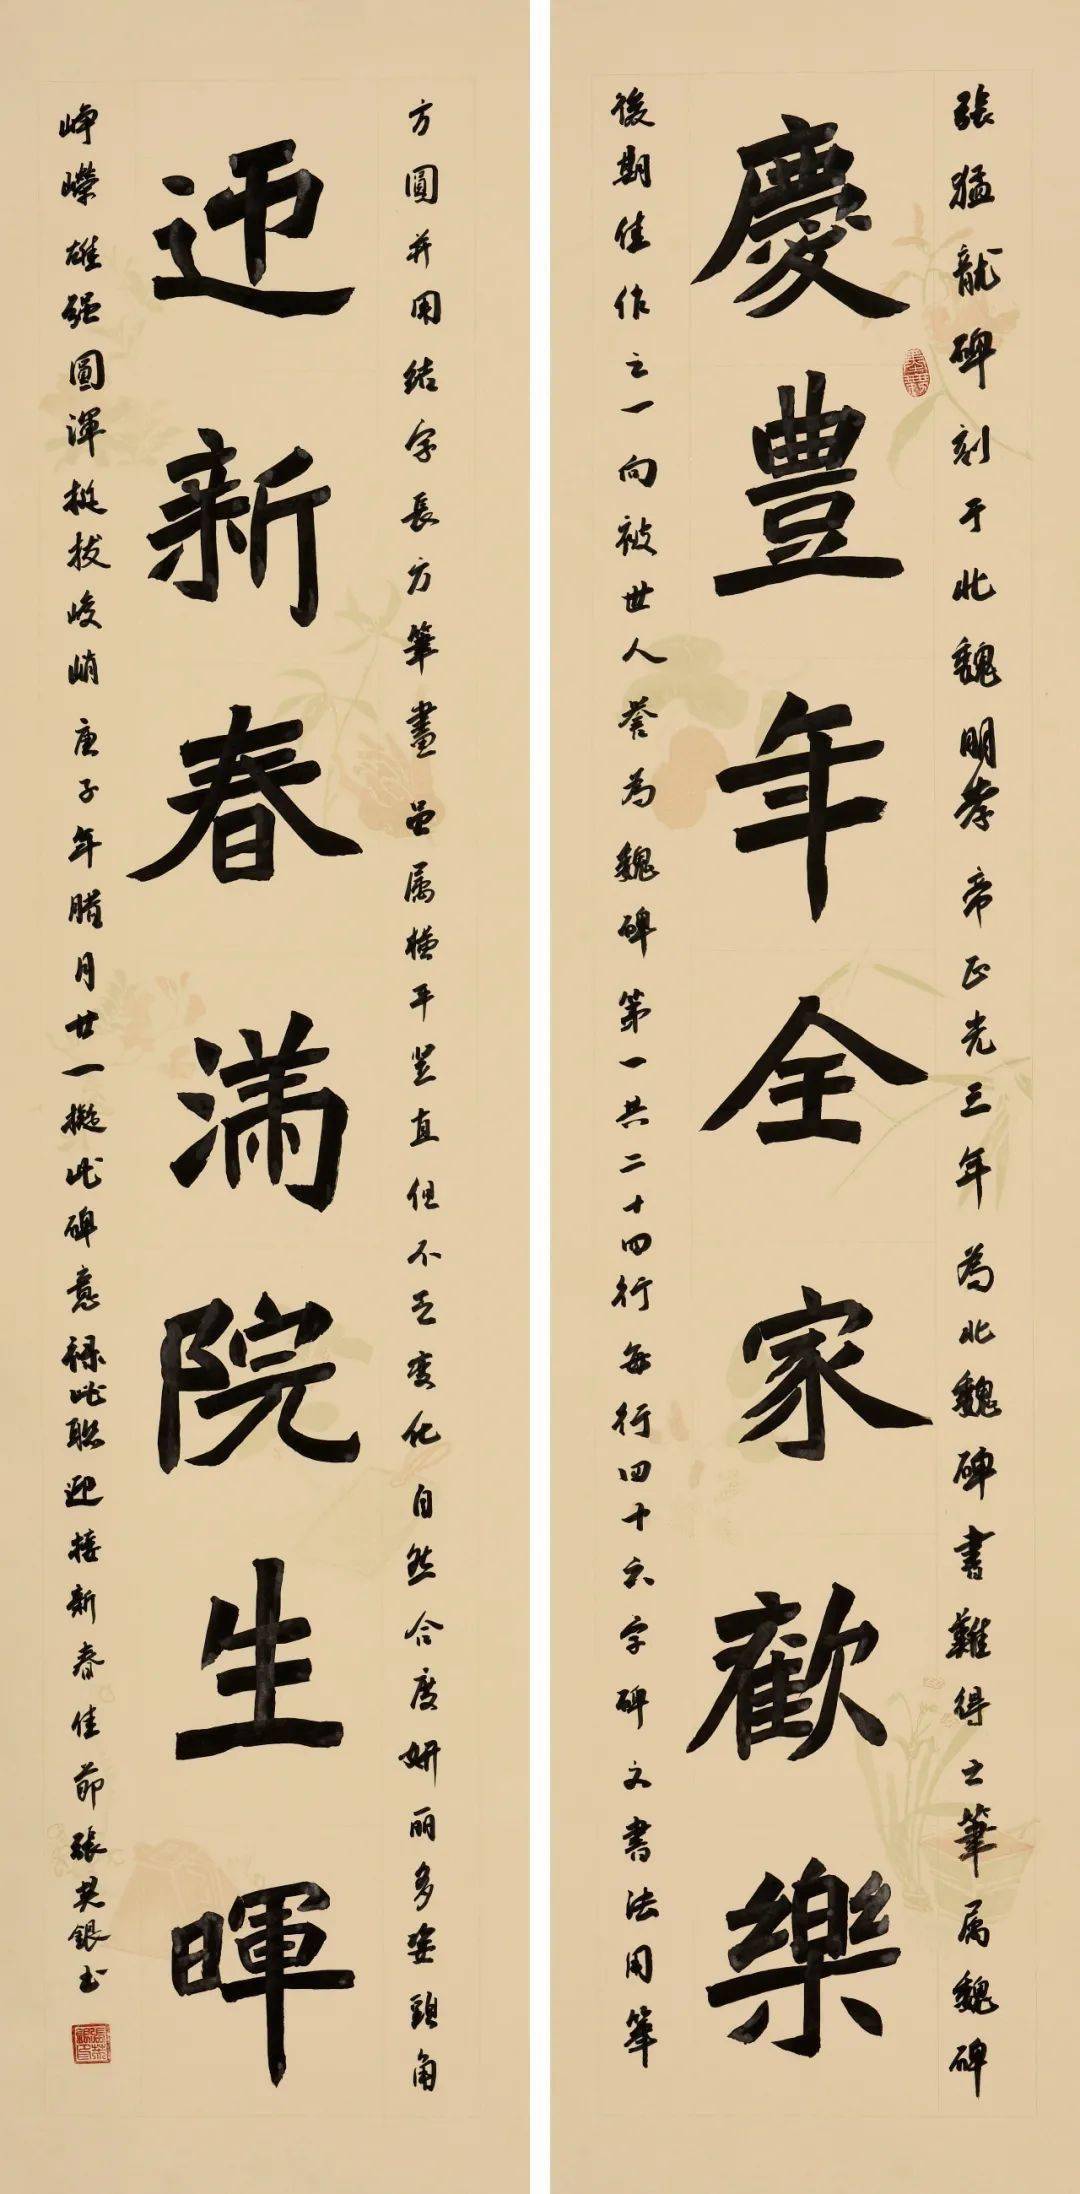 張猛龍碑刻于北魏明孝帝正光三年為北魏碑書難得之筆属魏碑
慶豐年全家歡樂
後期佳作之一向被世人誉為魏碑第一共二十四行每行四十六字碑文書法用筆
方圓并用结字長方筆畫虽属横平竖直但不乏变化自然合度妍丽多姿頭角
迎新春滿院生暉
崢嶸雄强圓渾挺拔峻峭庚子年腊月廿一擬此碑意録此联迎接新春佳節張英銀书